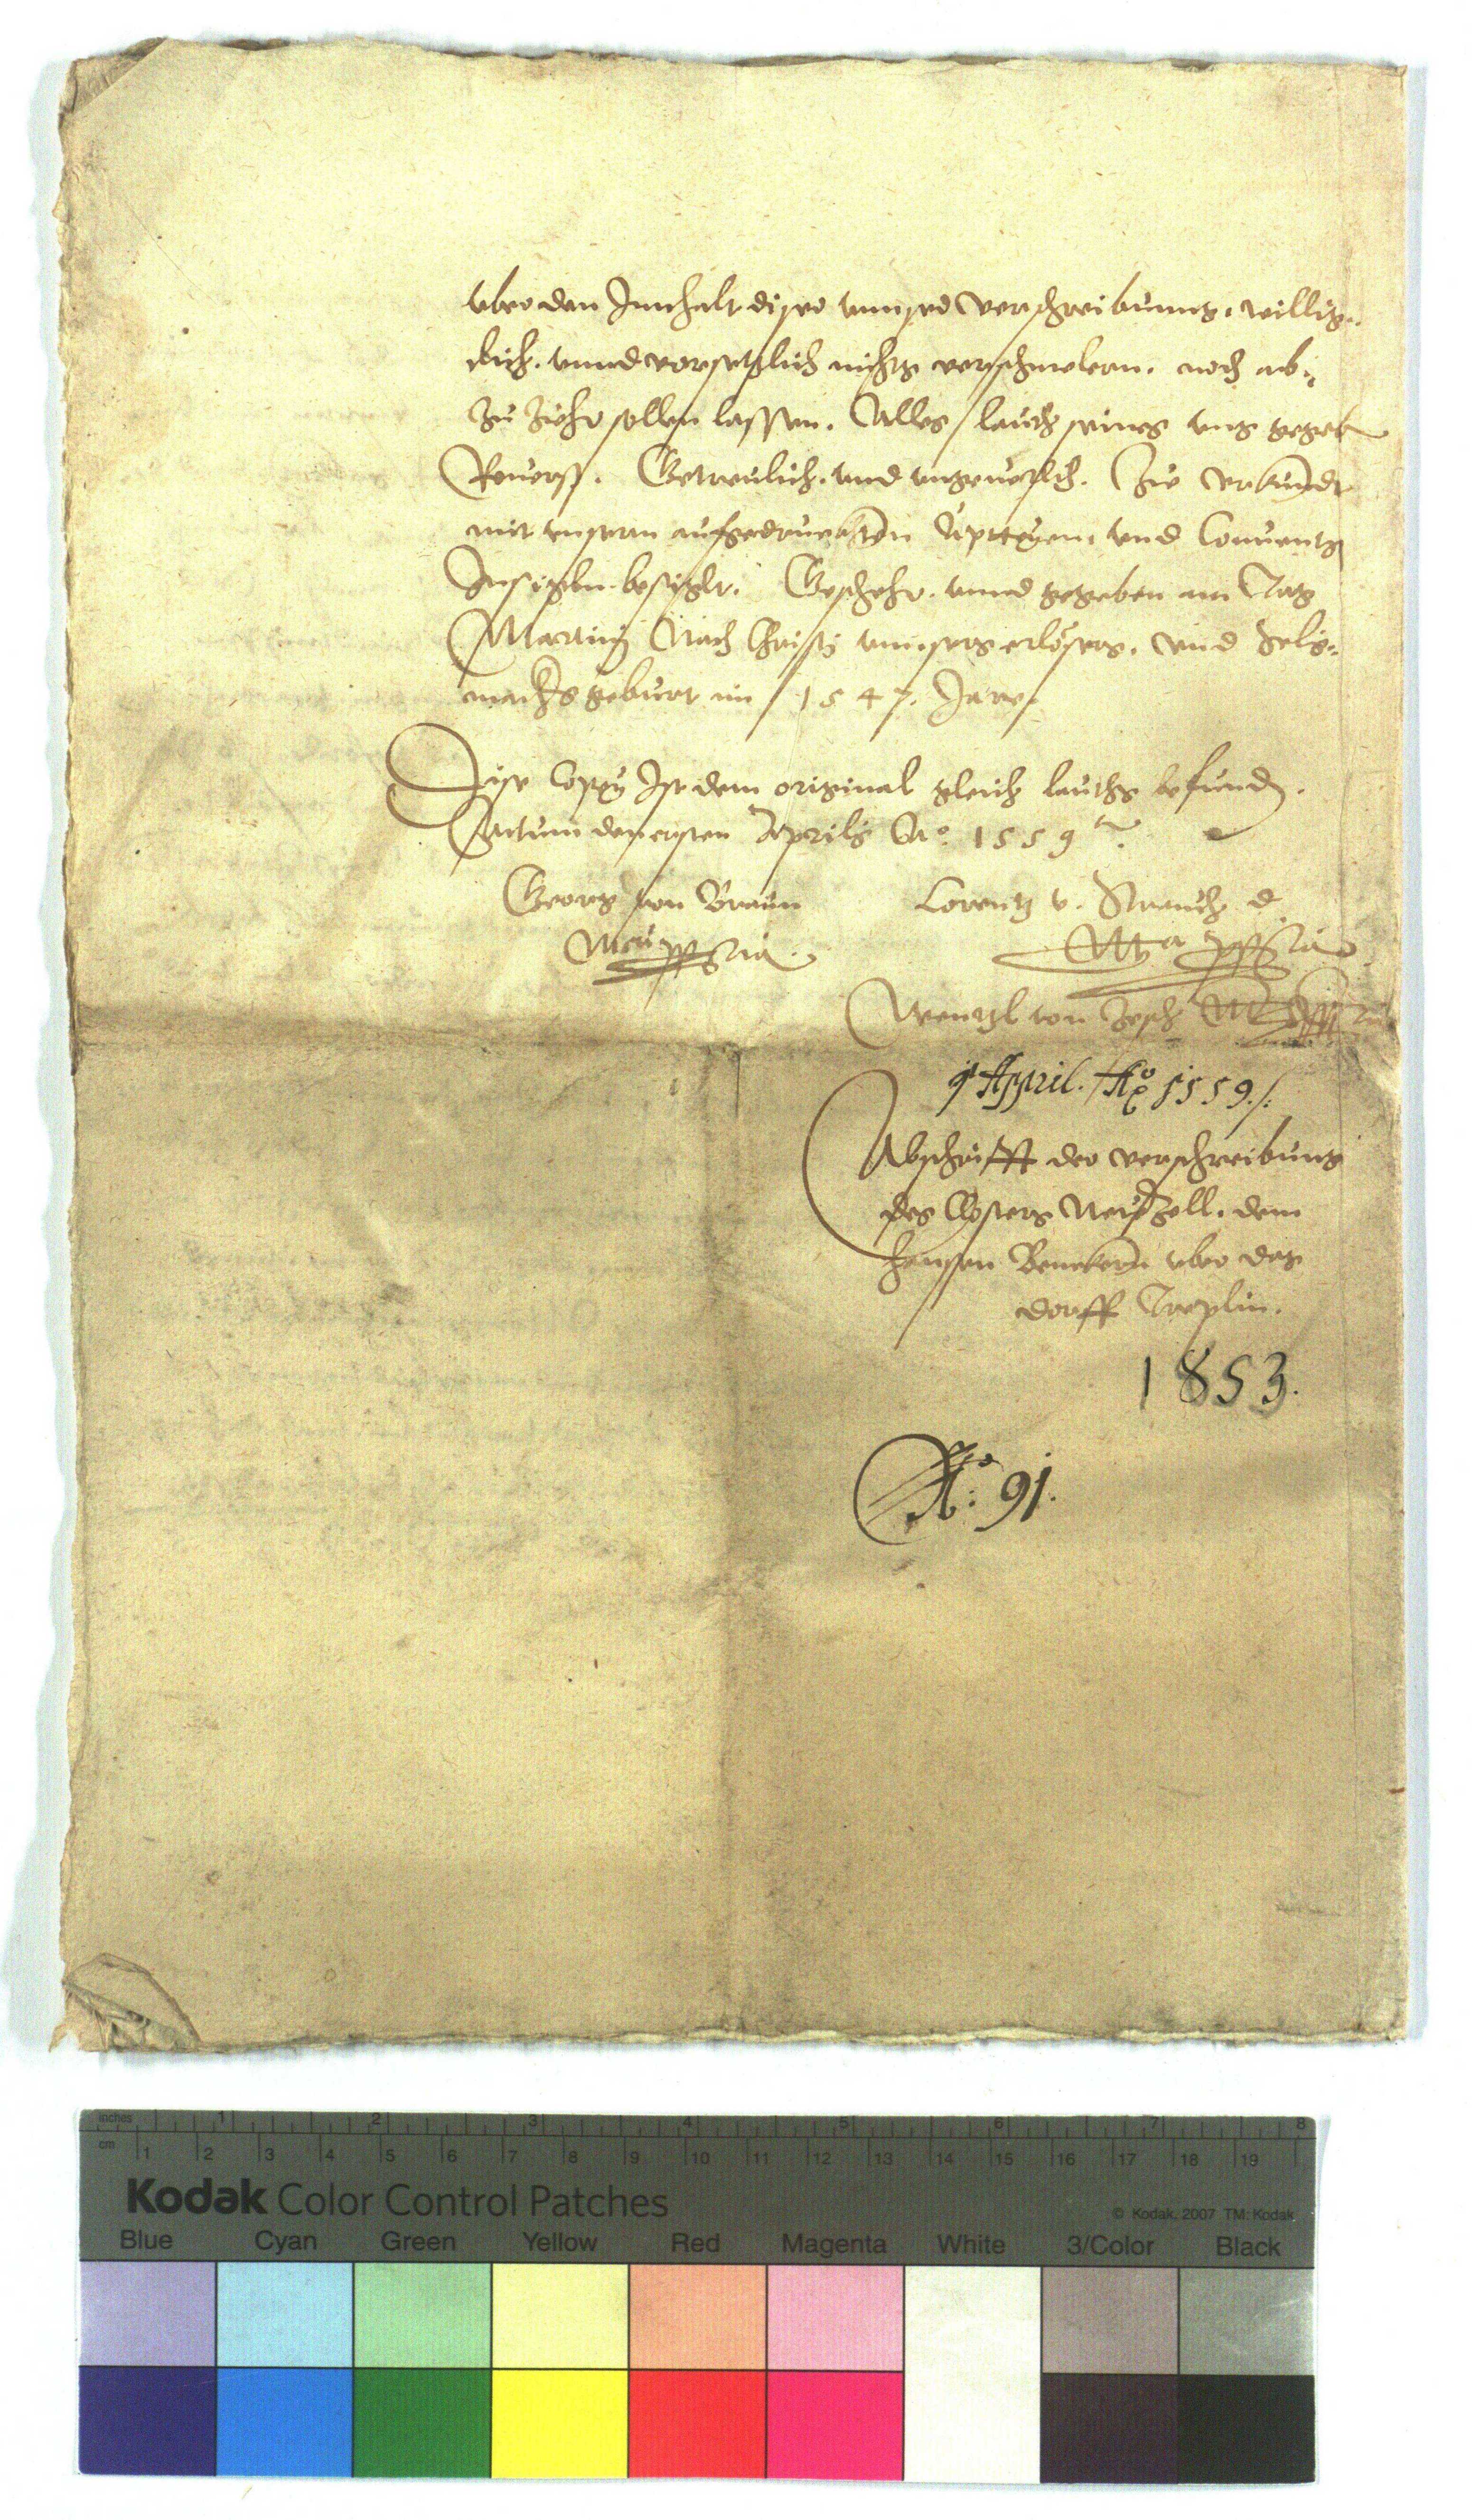 vber den Innhalt diser vnnser verschreibunng, willig-
lich, vnnd vorsetzlich nichts verschmelern, noch ab-
zu ziehn sollen lassen. Alles lauth seines vns gegeb
Reuerss. Getreulich, vnd vngeuerlich. Zu vrkundt
mit vnserm aufgedruckten Apteyen, vnd Conuents
Insigln besiglt. Geschehn, vnnd gegeben am Tag
Martinj Nach Christj vnnsers erlösers, vnd Selig-
machers geburt im 1547. Jare.
Dise Copey Ist dem original gleich lauths befunden.
Actum den ersten Aprilis Ao. 1559
Georg von Braun
Lorentz v. Strauch d
Mau ppria
Mya ppria
Wentzl von Zesch
9 April. Ao 1559./:
Abschrifft der verschreibung
des Closters Neuzell, dem
Hansen Beneken vber das
dorff Treplin.
1853.
No: 91.
inches 1 2 3 4 5 6 7 8
cm 1 2 3 4 5 6 7 8 9 10 11 12 13 14 15 16 17 18 19
Kodak Color Control Patches
© Kodak, 2007 TM: Kodak
Blue Cyan Green Yellow Red Magenta White 3/Color Black